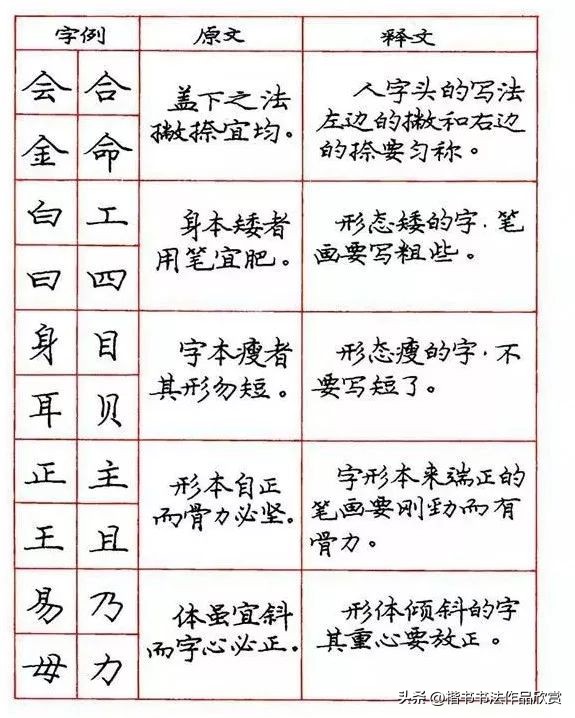 字例 原文 释文
会 合
金 命
盖下之法
撇捺宜均。
人字头的写法
左边的撇和右边
的捺要匀称。
白 工
曰 四
身本矮者
用笔宜肥。
形态矮的字，笔
画要写粗些。
身 目
耳 贝
字本瘦者
其形勿短。
形态瘦的字，不
要写短了。
正 主
王 且
形本自正
而骨力必坚。
字形本来端正的
笔画要刚劲而有
骨力。
易 乃
毋 力
体虽宜斜
而字心必正。
形体倾斜的字
其重心要放正。
头条@楷书书法作品欣赏